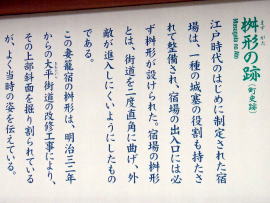 桝形の跡
ますがた
Masugata no Ato
(町史跡)
江戸時代のはじめに制定された宿
場は、一種の城塞の役割も持たさ
れて整備され、宿場の出入口には必
ず桝形が設けられた。宿場の桝形
とは、街道を二度直角に曲げ、外
敵が進入しにくいようにしたもの
である。
この妻籠宿の桝形は、明治三二年
からの大平街道の改修工事により、
その上部斜面を掘り割られている
が、よく当時の姿を伝えている。